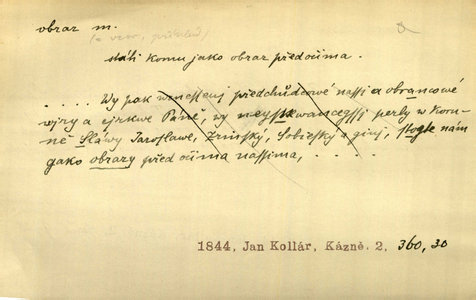 obraz m.
(= vzor, příklad)
státi komu jako obraz před očima.
. . . . . Wy pak wznessenj předchůdcowé nassi a obrancowé
wjry a cjrkwe Páně, wy neyskwaucegssj perly w Koru-
ně Sláwy Jaroslawe, Zrinský, Sobieský a ginj, stogte nám
gako obrazy před očima nassima, . . . . .
1844, Jan Kollár, Kázně. 2, 360, 30